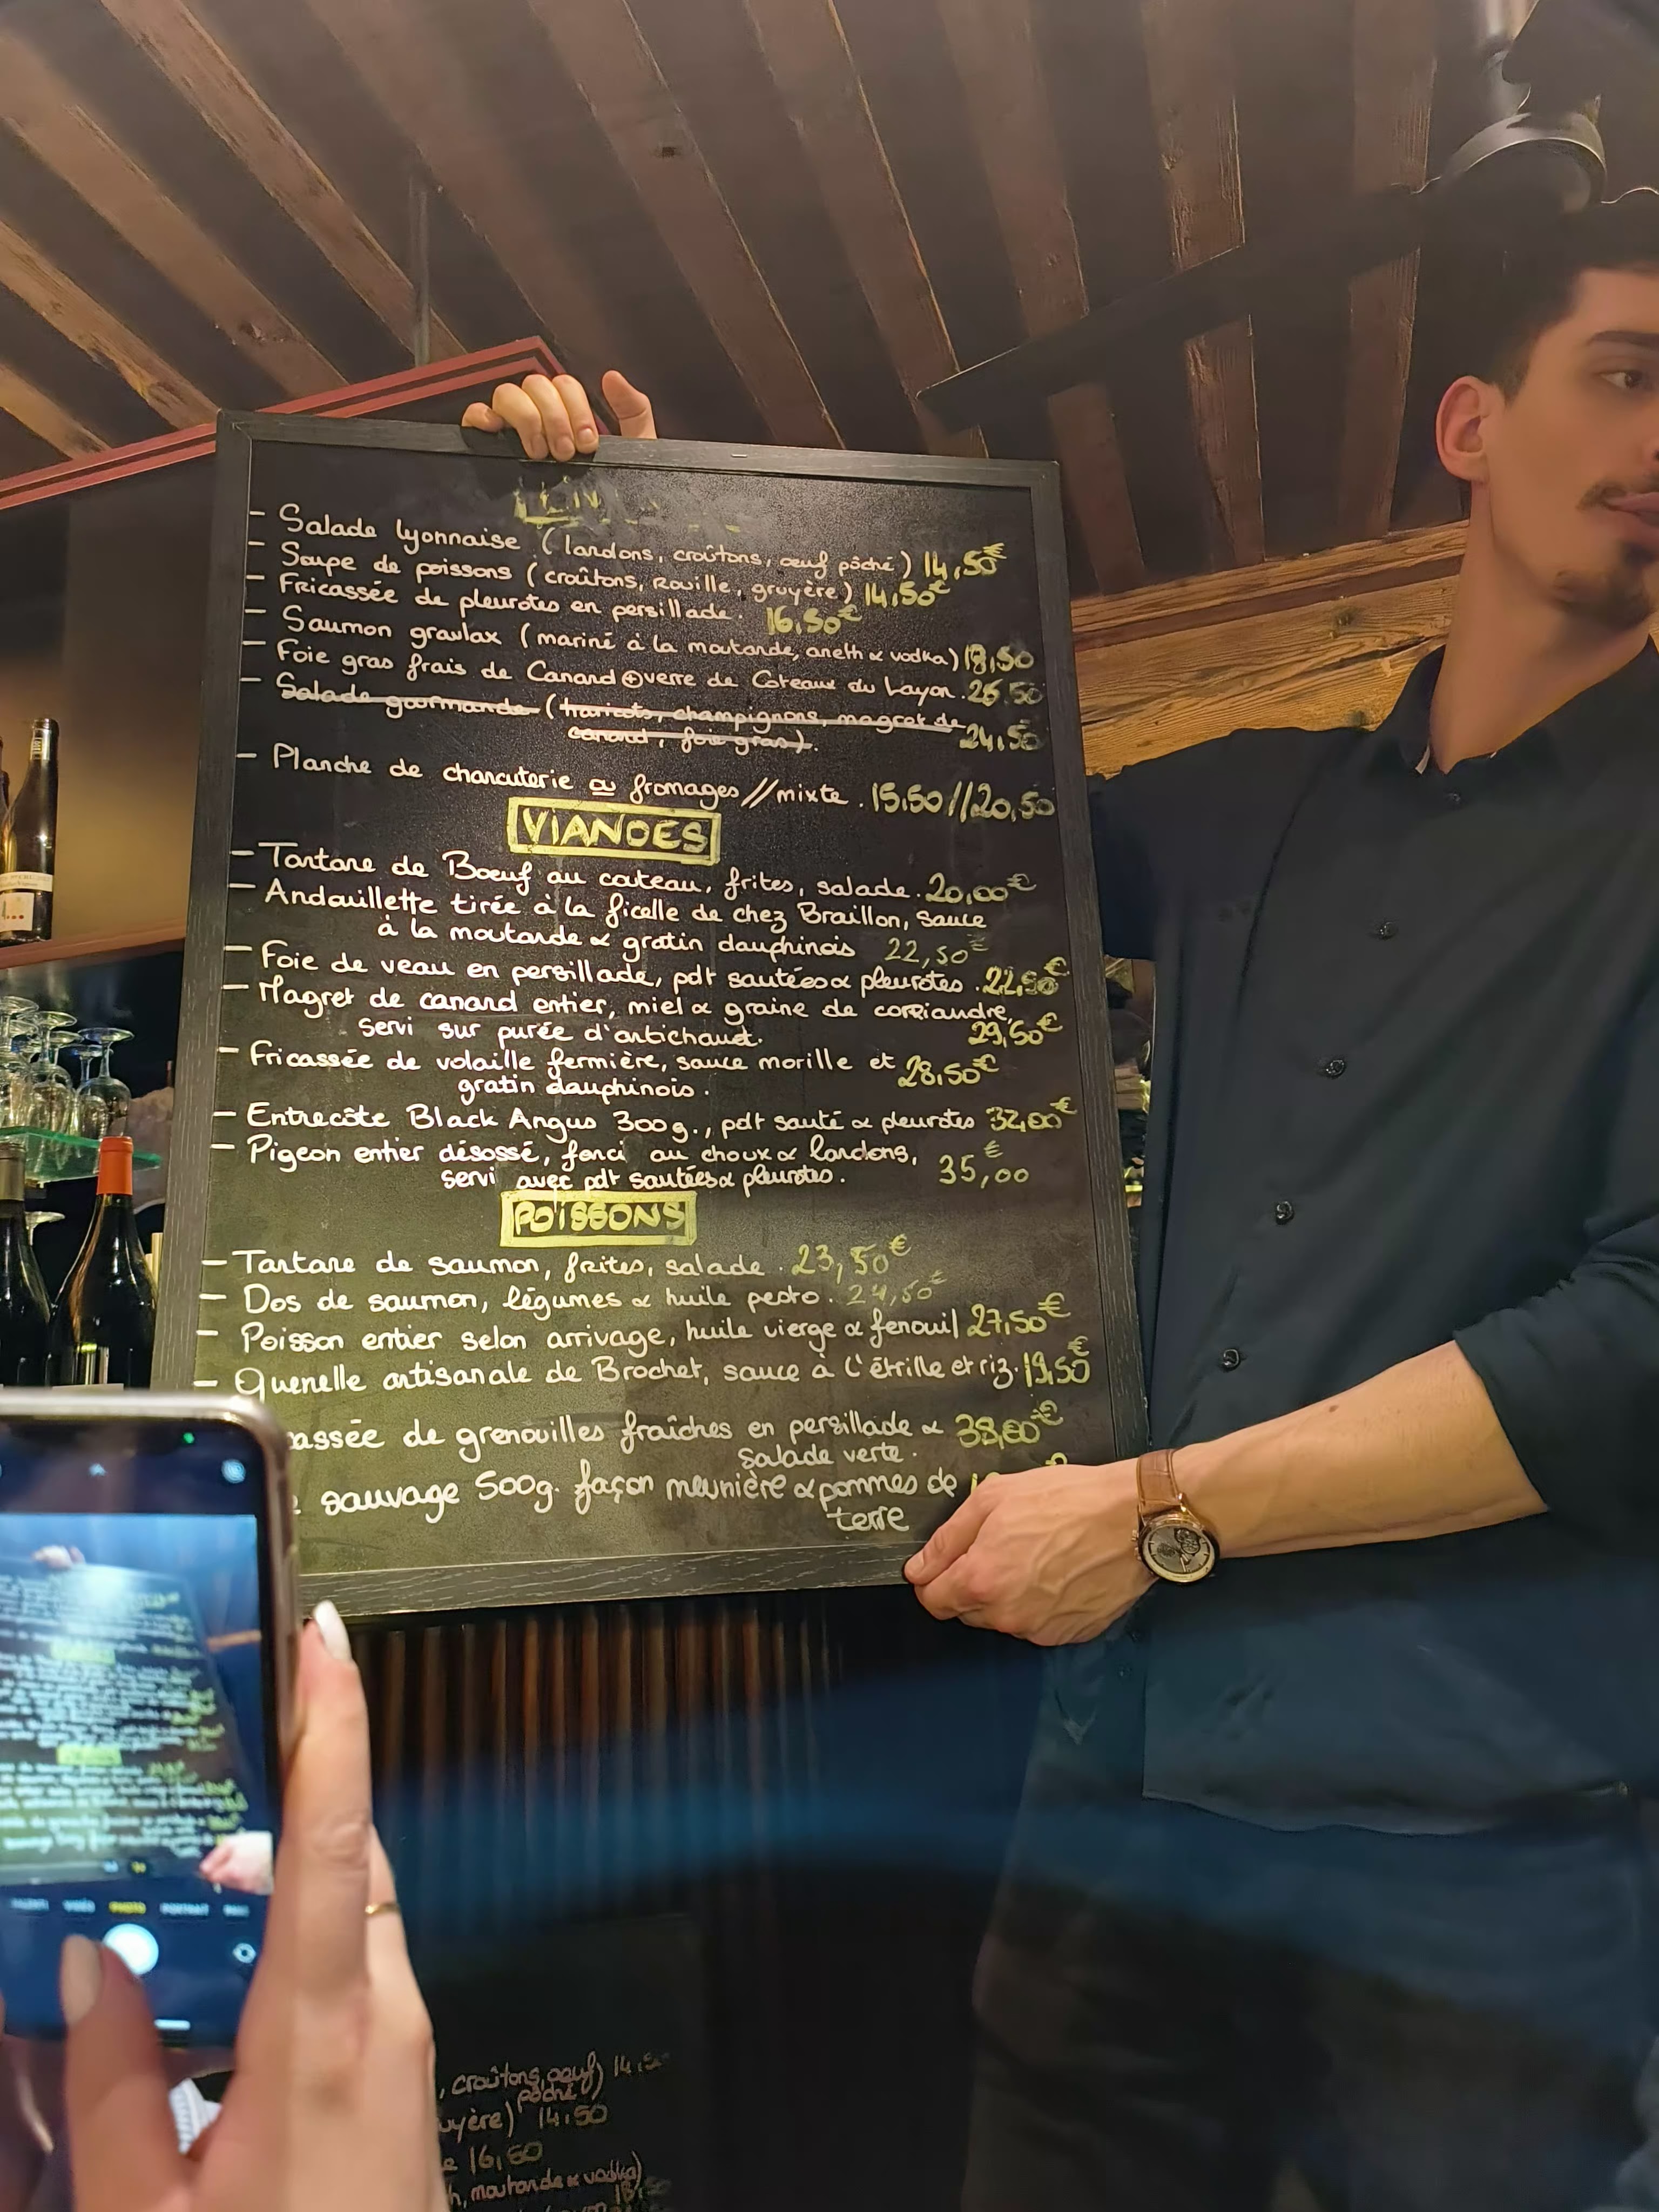 - Salade lyonnaise (lardons, croûtons, œuf pôché) 14,50€
- Soupe de poissons (croûtons, rouille, gruyère) 14,50€
- Fricassée de pleurotes en persillade. 16,50€
- Saumon gravlax (mariné à la moutarde, aneth & vodka) 18,50
- Foie gras frais de Canard ⊕ verre de Coteaux du Layon. 26.50
- Salade gourmande (haricots, champignons, magret de
canard, foie gras). 24,50
- Planche de charcuterie ou fromages // mixte. 15.50 // 20,50
VIANDES
- Tartare de Bœuf au couteau, frites, salade. 20,00€
- Andouillette tirée à la ficelle de chez Braillon, sauce
à la moutarde & gratin dauphinois 22,50€
- Foie de veau en persillade, pdt sautées & pleurotes. 22,50€
- Magret de canard entier, miel & graine de corriandre,
servi sur purée d'artichaut. 29,50€
- Fricassée de volaille fermière, sauce morille et 28,50€
gratin dauphinois.
- Entrecôte Black Angus 300g., pdt sauté & pleurotes 32,00€
- Pigeon entier désossé, farci au choux & lardons,
servi avec pdt sautées & pleurotes. 35,00€
POISSONS
- Tartare de saumon, frites, salade. 23,50€
- Dos de saumon, légumes & huile pesto. 24,50€
- Poisson entier selon arrivage, huile vierge & fenouil 27,50€
- Quenelle artisanale de Brochet, sauce à l'étrille et riz. 19,50€
assée de grenouilles fraîches en persillade &
salade verte.
sauvage 500g. façon meunière & pommes de
terre
PHOTO
PORTRAIT
, croûtons, oeuf) 14,50
pôché
uyère) 14.50
16,50
h, moutarde & vodka)
18,50